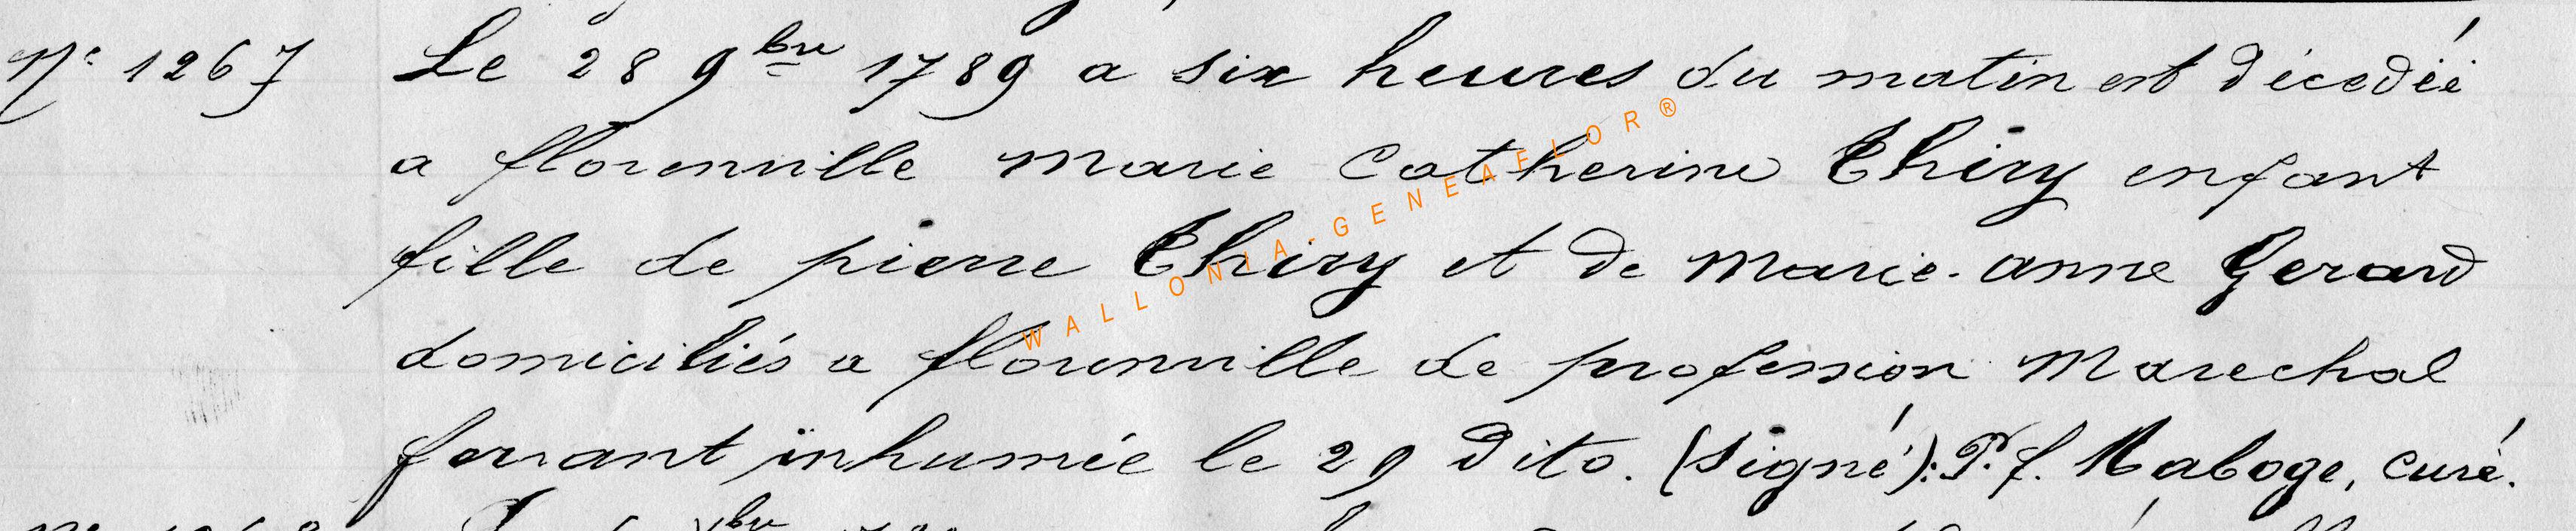 N° 1267 Le 28 9bre 1789 a six heures du matin est décedéé
a florenville Marie Catherine Thiry enfant
fille de pierre Thiry et de Marie-anne Gerard
domiciliés a florenville de profession Marechal
ferrant inhumée le 29 Dito. (signé): P. f. Maboge, curé.
WALLONIA-GENEAFLOR®